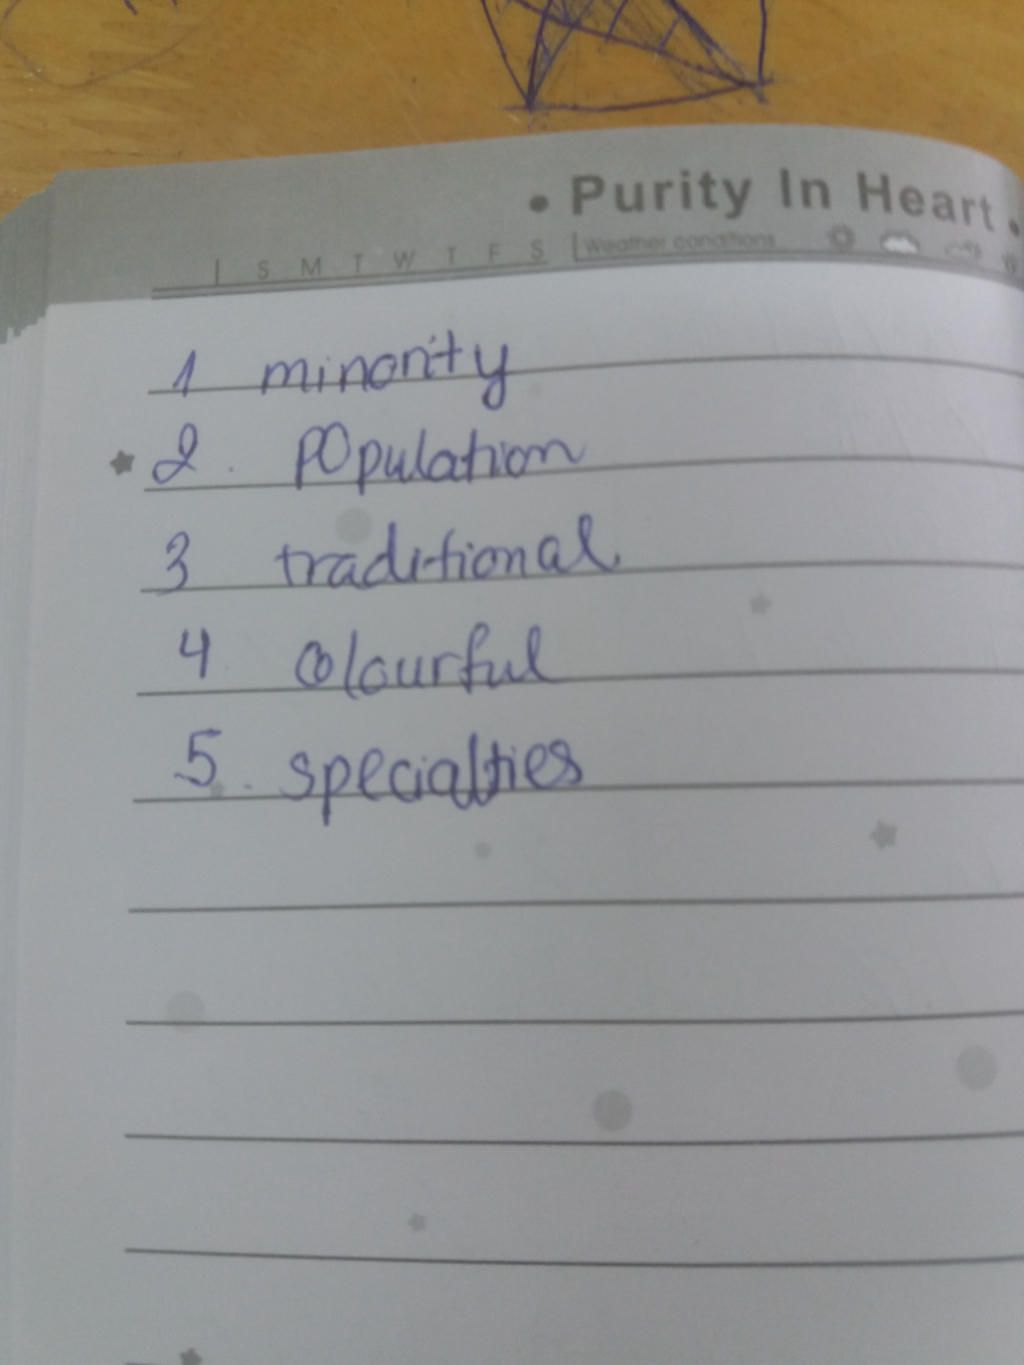 • Purity In Heart •
S M T W T F S Weather conditions
1 minority
2. Population
3 traditional
4 colourful
5. specialties